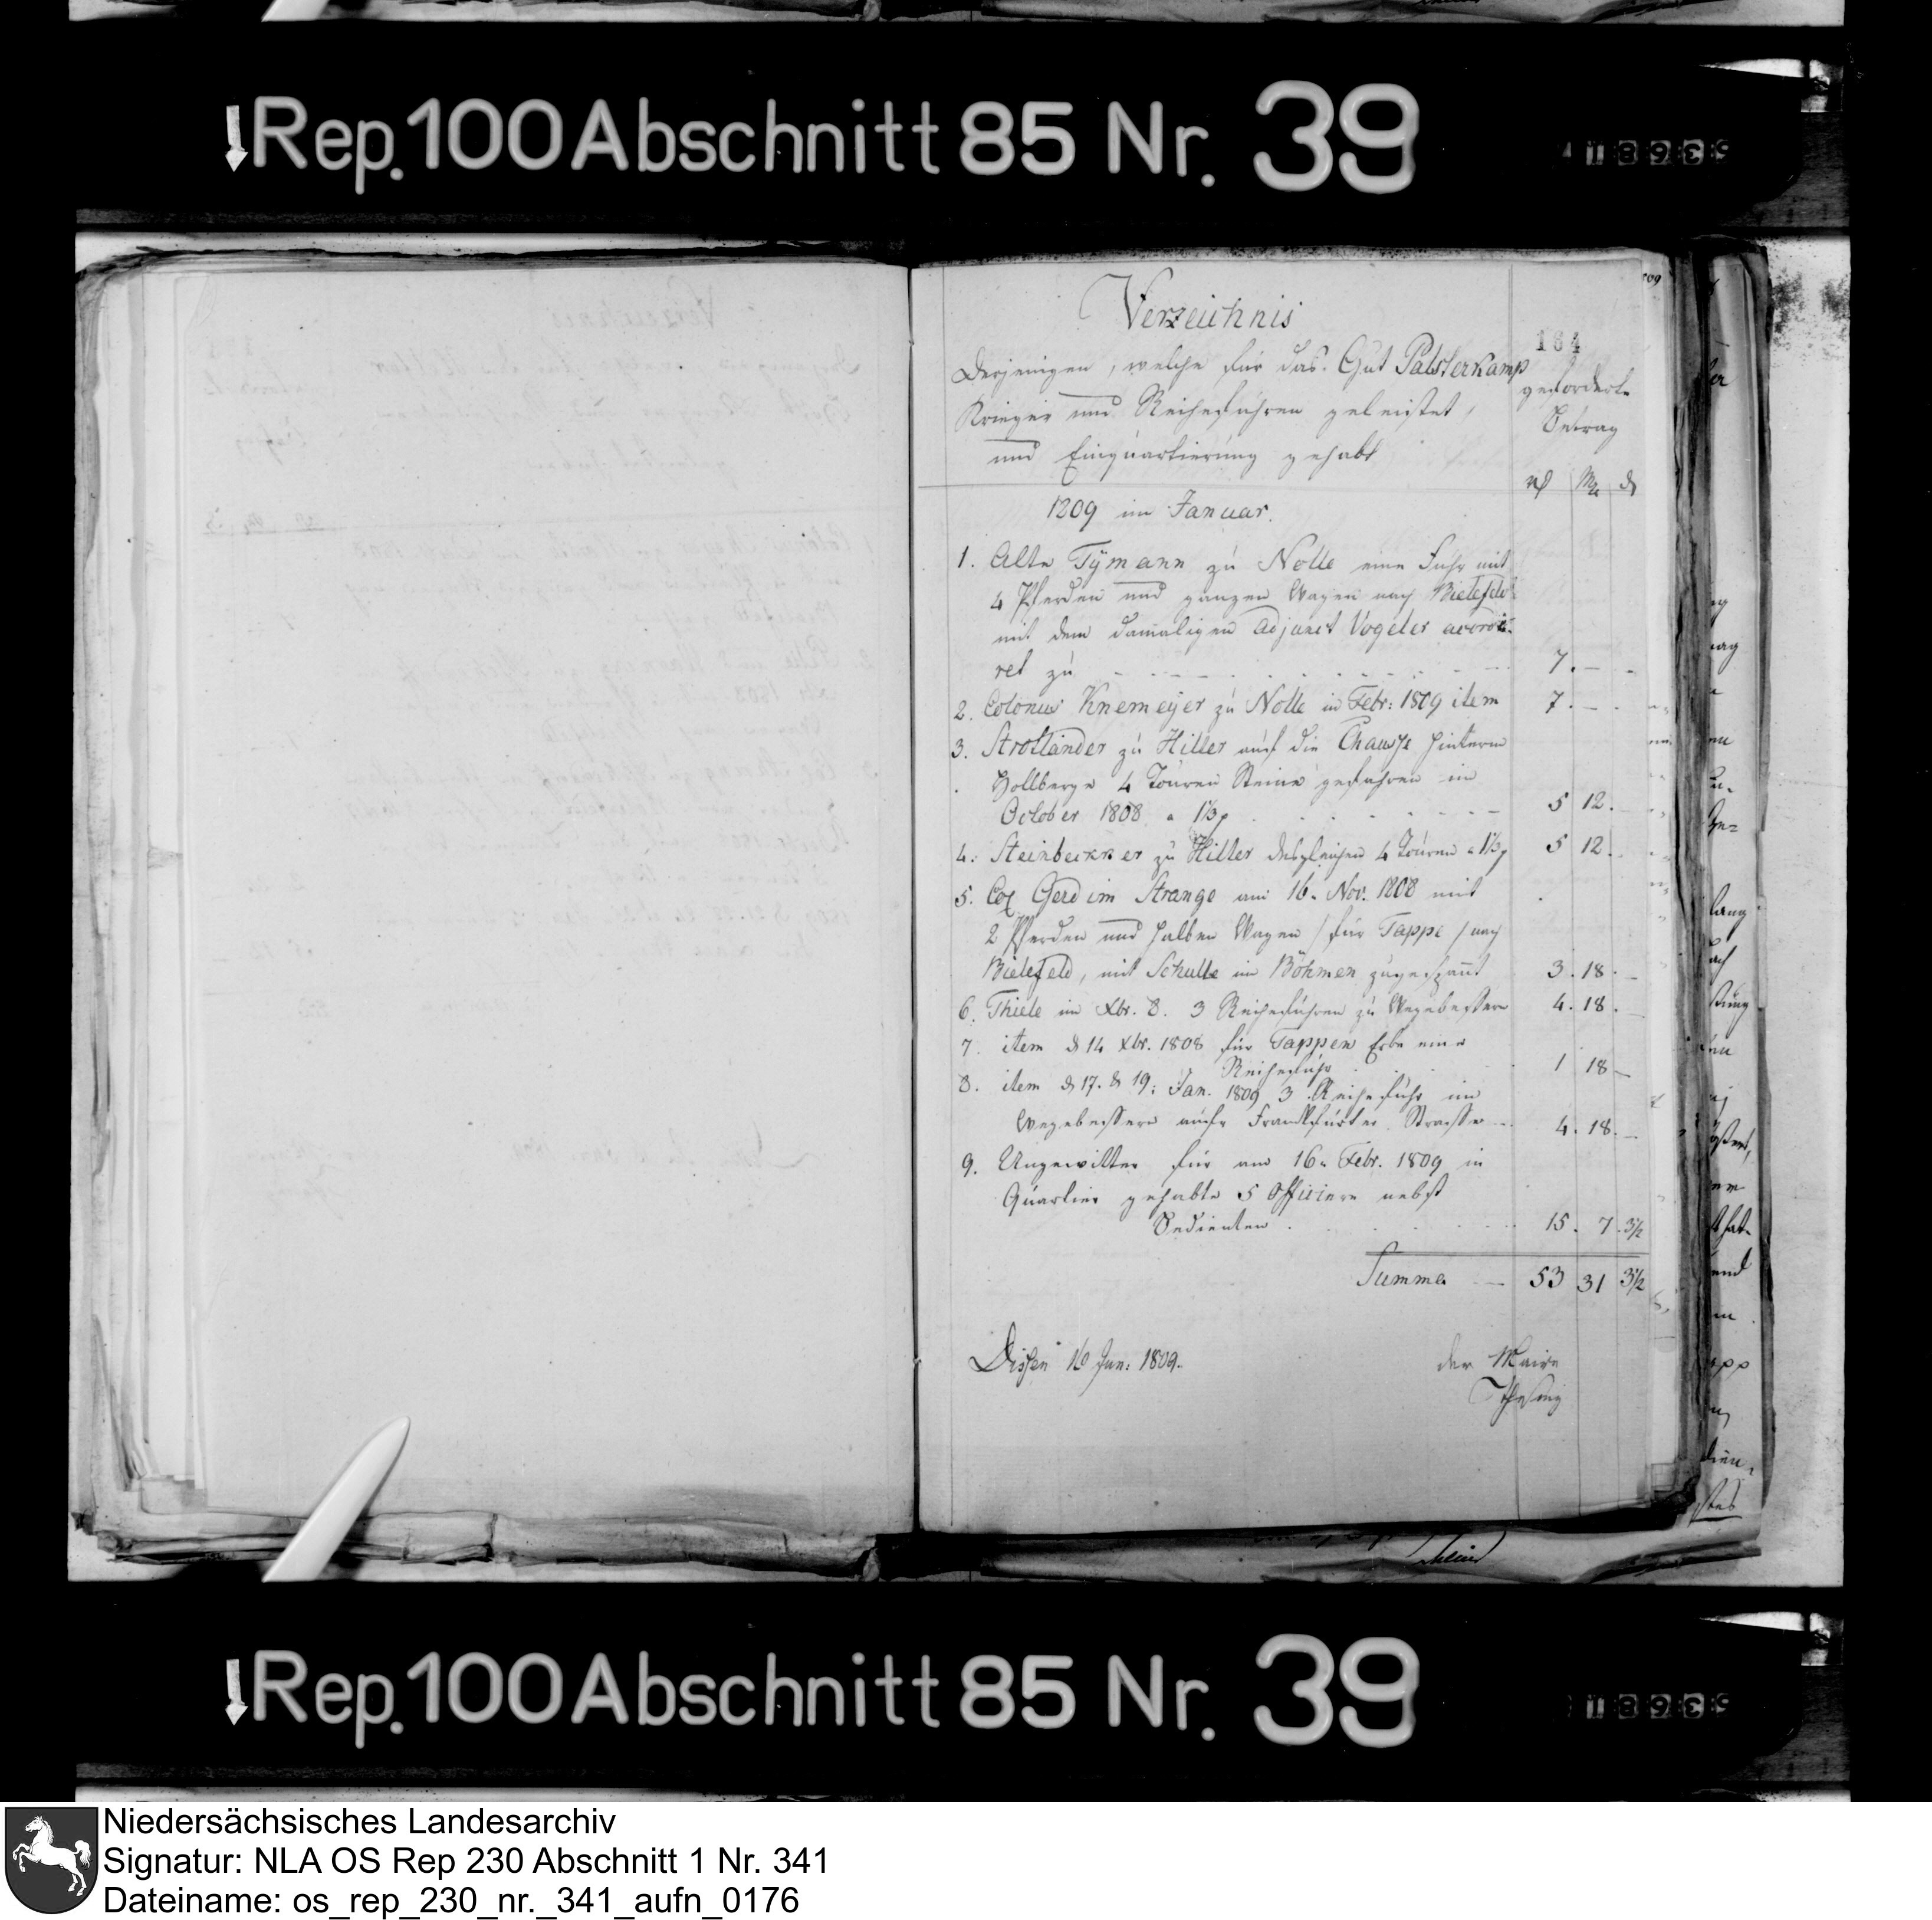 Rep. 100 Abschnitt 85 Nr. 39
Verzeichnis
184
Derjenigen, welche für das Gut Palsterkamp
Krieger und Reihefuhren geleistet,
und Einquartierung gehabt
geforderte
Betrag
1809 im Januar.
1. Alte Tÿmann zu Nolle eine Fuhr mit
4 Pferden und ganzen Wagen nach Bielefeld
mit dem damaligen Adjunct Vogeler accordi-
ret zu 7. — -
2. Colonus Knemeÿer zu Nolle in Febr: 1809 item 7. — -
3. Strotlander zu Hilter auf die Chaussee hinterm
Hollberge 4 Touren Steine gefahren im
October 1808 a 1⅓ 5 12. -
4. Steinbecker zu Hilter desgleichen 4 Touren a 1⅓ 5 12.
5. Col Gerd im Strange am 16. Nov. 1808 mit
2 Pferden und halben Wagen / für Tappe / nach
Bielefeld, mit Schulte im Böhmen zugespannt 3. 18. -
6. Thiele im Xbr. 8. 3 Reihefuhren zu Wegebessern 4. 18. -
7. item d 14 Xbr. 1808 für Tappen Erbe eine
Reihefuhr 1 18 —
8. item d 17. & 19: Jan. 1809 3 Reihefuhr im
Wegebessern aufr Frankfurter Strasse 4. 18. —
9. Ungewitter für am 16. Febr. 1809 in
Quartier gehabte 5 Officiere nebst
Bedienten 15. 7. 3½
Summa — 53 31 3½
Dissen 10 Jun: 1809.
der Maire
Rep. 100 Abschnitt 85 Nr. 39
Niedersächsisches Landesarchiv
Signatur: NLA OS Rep 230 Abschnitt 1 Nr. 341
Dateiname: os_rep_230_nr._341_aufn_0176